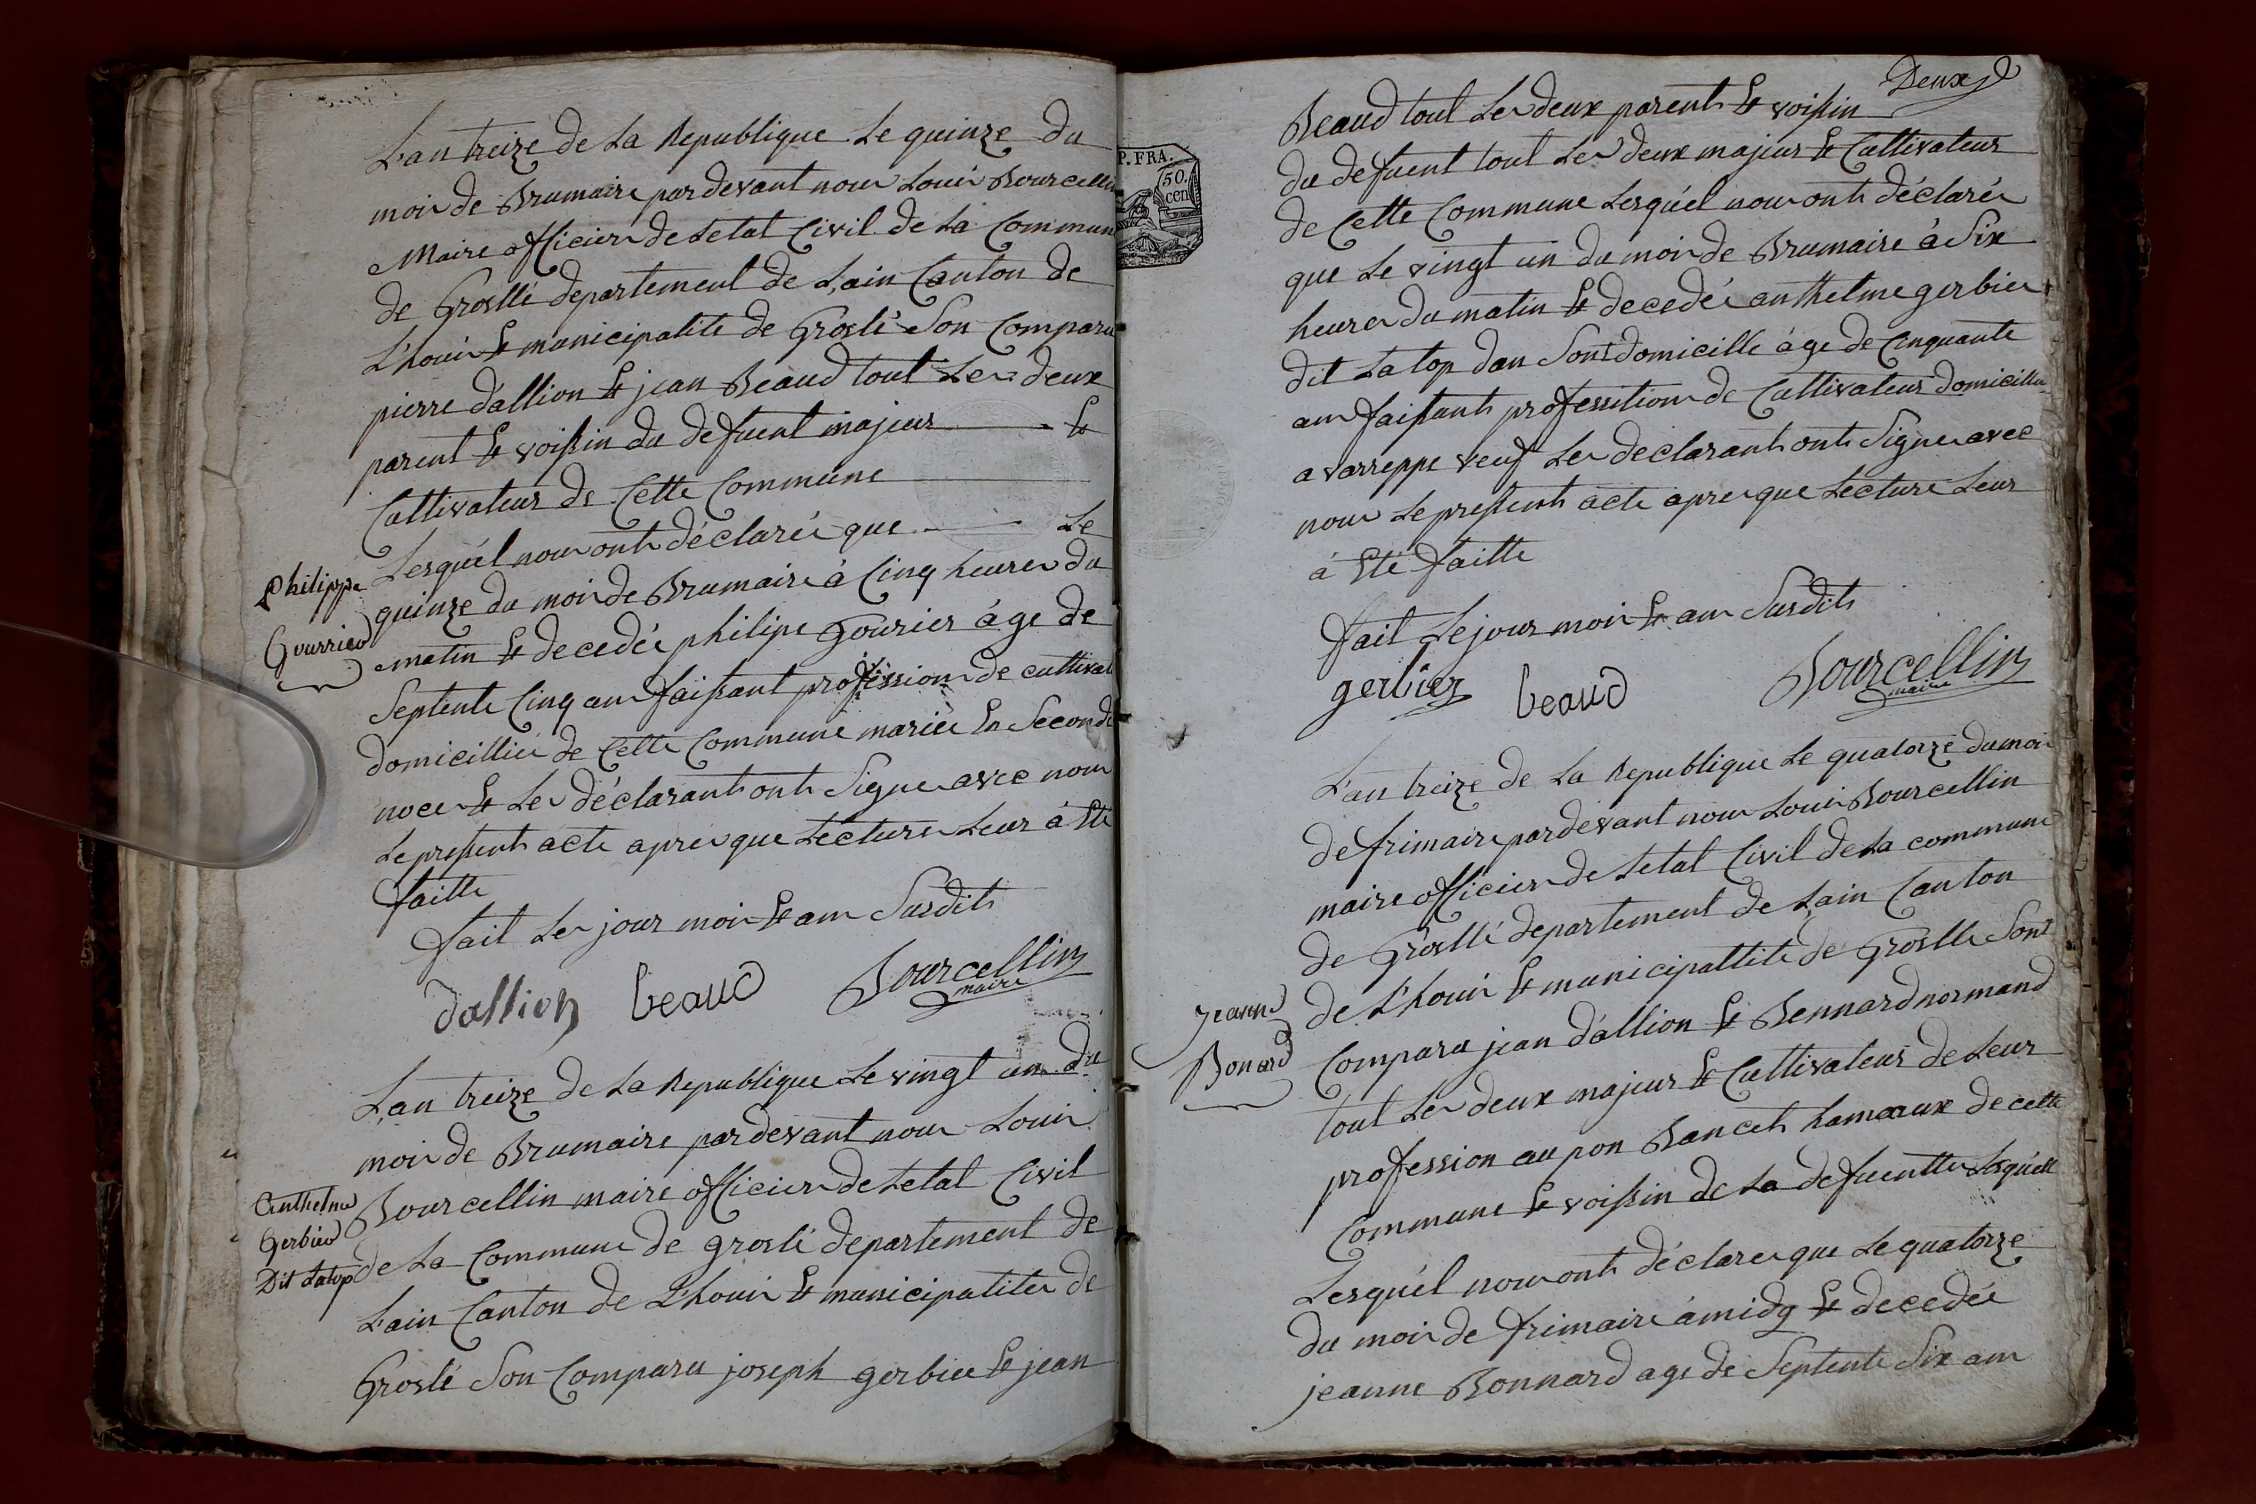 L'an treize de La Republique Le quinze du
mois de Brumaire pardevant nous Louis Bourcellin
Maire officier de Letat Civil de La Commune
de Groslé departement de L'ain Canton de
L'houis & municipalité de Groslé Son Comparu
pierre d'allion & jean Beaud tout Les deux
parent & voissin du defuent majeur &
Cultivateur de Cette Commune
Lesquél nous onts déclarés que Le
Philippe
quinze du mois de Brumaire à Cinq heures du
Gourrier
matin & decedée philipe Gourier àge de
Septente Cinq ans faissant profession de cultivat
domicilliée de Cette Commune mariée En Seconde
noces & Les déclarants onts Signe avec nous
Le pressents acte apres que Lecture Leur à Eté
faitte
fait Les jour mois & ans Susdits
dallion beaud Bourcellin
maire
L'an treize de La Republique Le vingt un du
mois de Brumaire pardevant nous Louis
Anthelme
Bourcellin maire officier de Letat Civil
Gerbier
de La Commune de groslé departement de
Dit Latop
L'ain Canton de L'houis & municipalites de
Groslé Son Comparu joseph gerbier & jean
Deux
P. FRA.
50.
cen
Beaud tout Les deux parents & voissin
du defuent tout Les deux majeur & Cultivateur
de Cette Commune Lesquél nous onts déclarés
que Le vingt un du mois de Brumaire à Six
heures du matin & decedée anthelme gerbier
dit Latop dan Sont domicille àge de Cinquante
ans faissants professition de Cultivateur domicillie
a varreppe veuf Les declarants onts Signe avec
nous Le pressents acte apres que Lecture Leur
à Eté faitte
fait Le jour mois & ans Susdits
gerbier beaud Bourcellin
maire
L'an treize de La Republique Le quatorze du mois
de frimaire pardevant nous Louis Bourcellin
maire officier de Letat Civil de La commune
de Groslé departement de L'ain Canton
de L'houis & municipalitte de Groslle Sont
Jeanne
Comparu jean d'allion & Bennard normand
Bonard
tout Les deux majeur & Cultivateur de Leur
profession au pon Bancets hameaux de cette
Commune & voissin de La defuentte Lesquelle
Lesquél nous onts déclare que Le quatorze
du mois de frimaire àmidy & decedée
jeanne Bonnard age de Septente Six ans